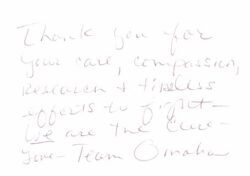 Thank you for
your care, compassion,
research & tireless
efforts to fight—
We are the Cure—
Love— Team Omaha